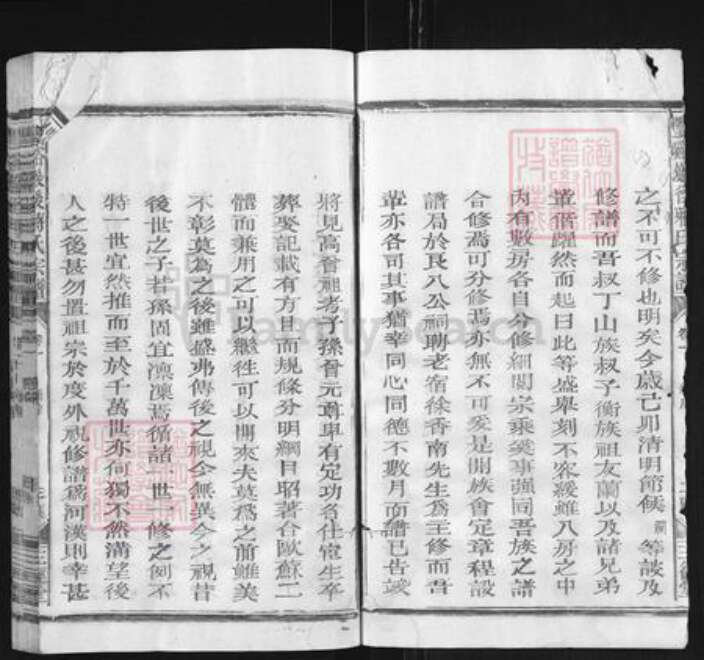 之不可不修也明矣今歲己卯清明節候蘭等談及
修譜而吾叔丁山族叔子衡族祖友蘭以及諸兄弟
輩僭躍然而起曰此等盛舉刻不容緩雖八房之中
內有數房各自分修細閱宗乘奚事強同吾族之譜
合修焉可分修焉亦無不可爰是開族會定章程設
譜局於艮八公祠聘老宿徐香南先生爲主修而吾
輩亦各司其事猶幸同心同德不數月而譜已告竣
將見高曾祖考子孫曾元尊卑有定功名仕宦生卒
葬娶記載有方且而規條分明綱目昭著合歐蘇二
體而兼用之可以繼往可以開來夫莫爲之前雖美
不彰莫為之後雖盛弗傳後之視今無異今之視昔
後世之子若孫固宜凜凜焉循諸世一修之例不
特一世宜然推而至於千萬世亦何獨不然滿望後
人之後甚勿置祖宗於度外視修譜爲河漢則幸甚
FamilySearch